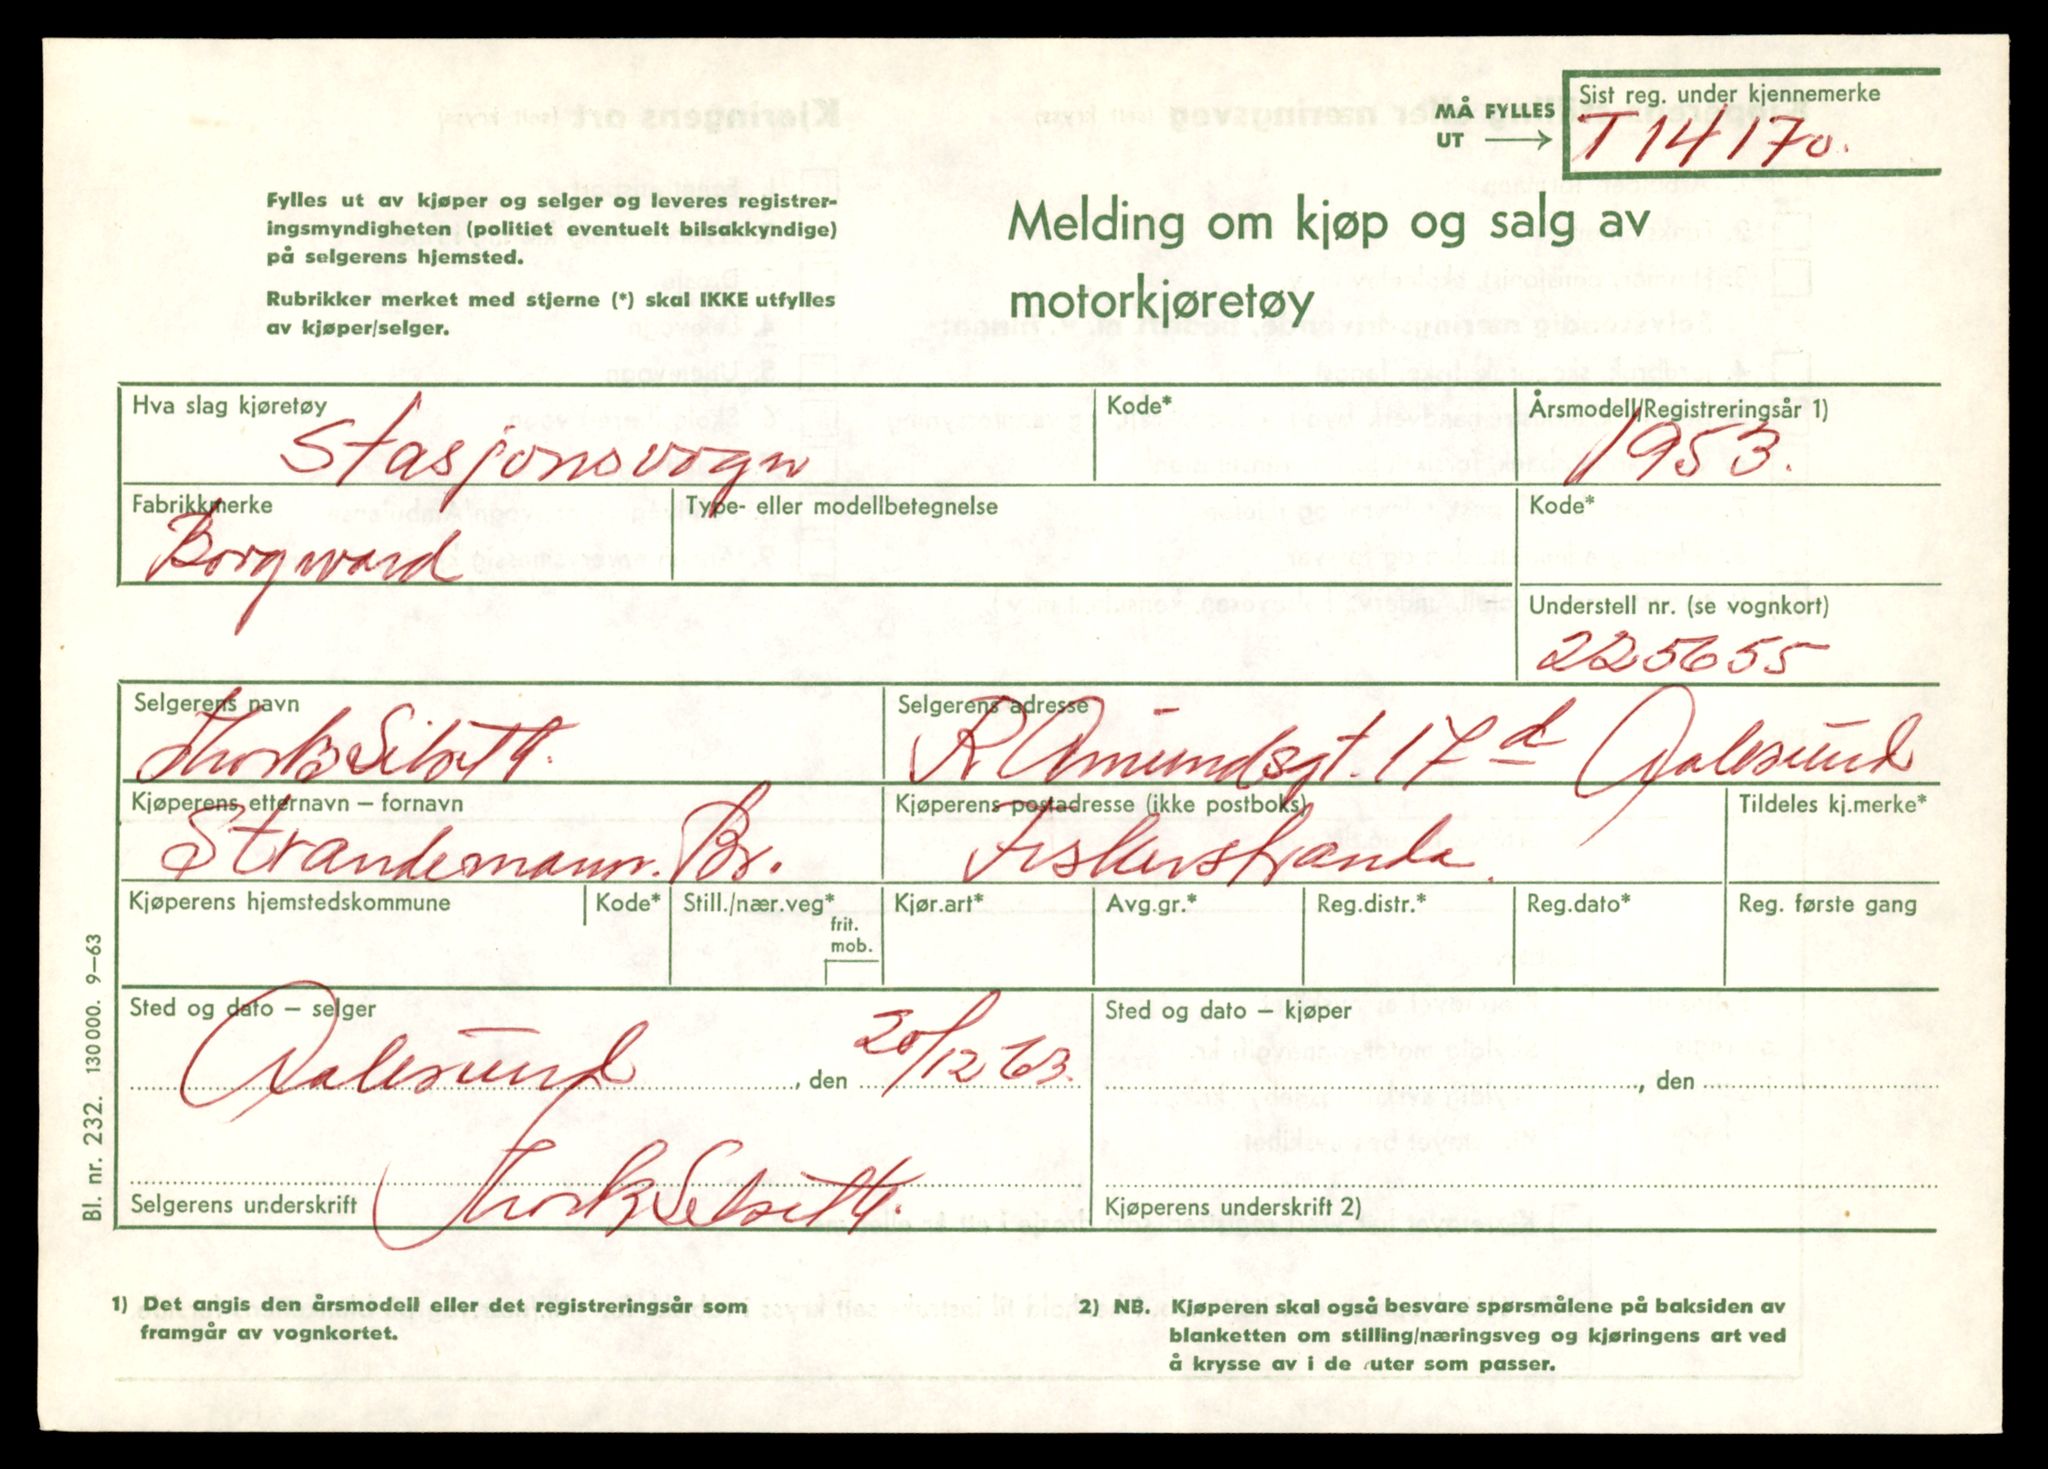 MÅ FYLLES UT
Sist reg. under kjennemerke
T 14170.
Fylles ut av kjøper og selger og leveres registrer-
ingsmyndigheten (politiet eventuelt bilsakkyndige)
på selgerens hjemsted.
Rubrikker merket med stjerne (*) skal IKKE utfylles
av kjøper/selger.
Melding om kjøp og salg av
motorkjøretøy
Hva slag kjøretøy
Stasjonsvogn
Kode*
Årsmodell/Registreringsår 1)
1953.
Fabrikkmerke
Borgward
Type- eller modellbetegnelse
Kode*
Understell nr. (se vognkort)
225655
Selgerens navn
Selgerens adresse
R Amundsgt. 17 d Aalesund
Kjøperens etternavn – fornavn
Strandemann. Br.
Kjøperens postadresse (ikke postboks)
Fiskerstranda.
Tildeles kj.merke*
Kjøperens hjemstedskommune
Kode*
Still./nær.veg*
frit.
mob.
Kjør.art*
Avg.gr.*
Reg.distr.*
Reg.dato*
Reg. første gang
Sted og dato – selger
Aalesund, den 20/12 63.
Selgerens underskrift
Sted og dato – kjøper
, den
Kjøperens underskrift 2)
Bl. nr. 232. 130 000. 9–63
1) Det angis den årsmodell eller det registreringsår som
framgår av vognkortet.
2) NB. Kjøperen skal også besvare spørsmålene på baksiden av
blanketten om stilling/næringsveg og kjøringens art ved
å krysse av i de ruter som passer.